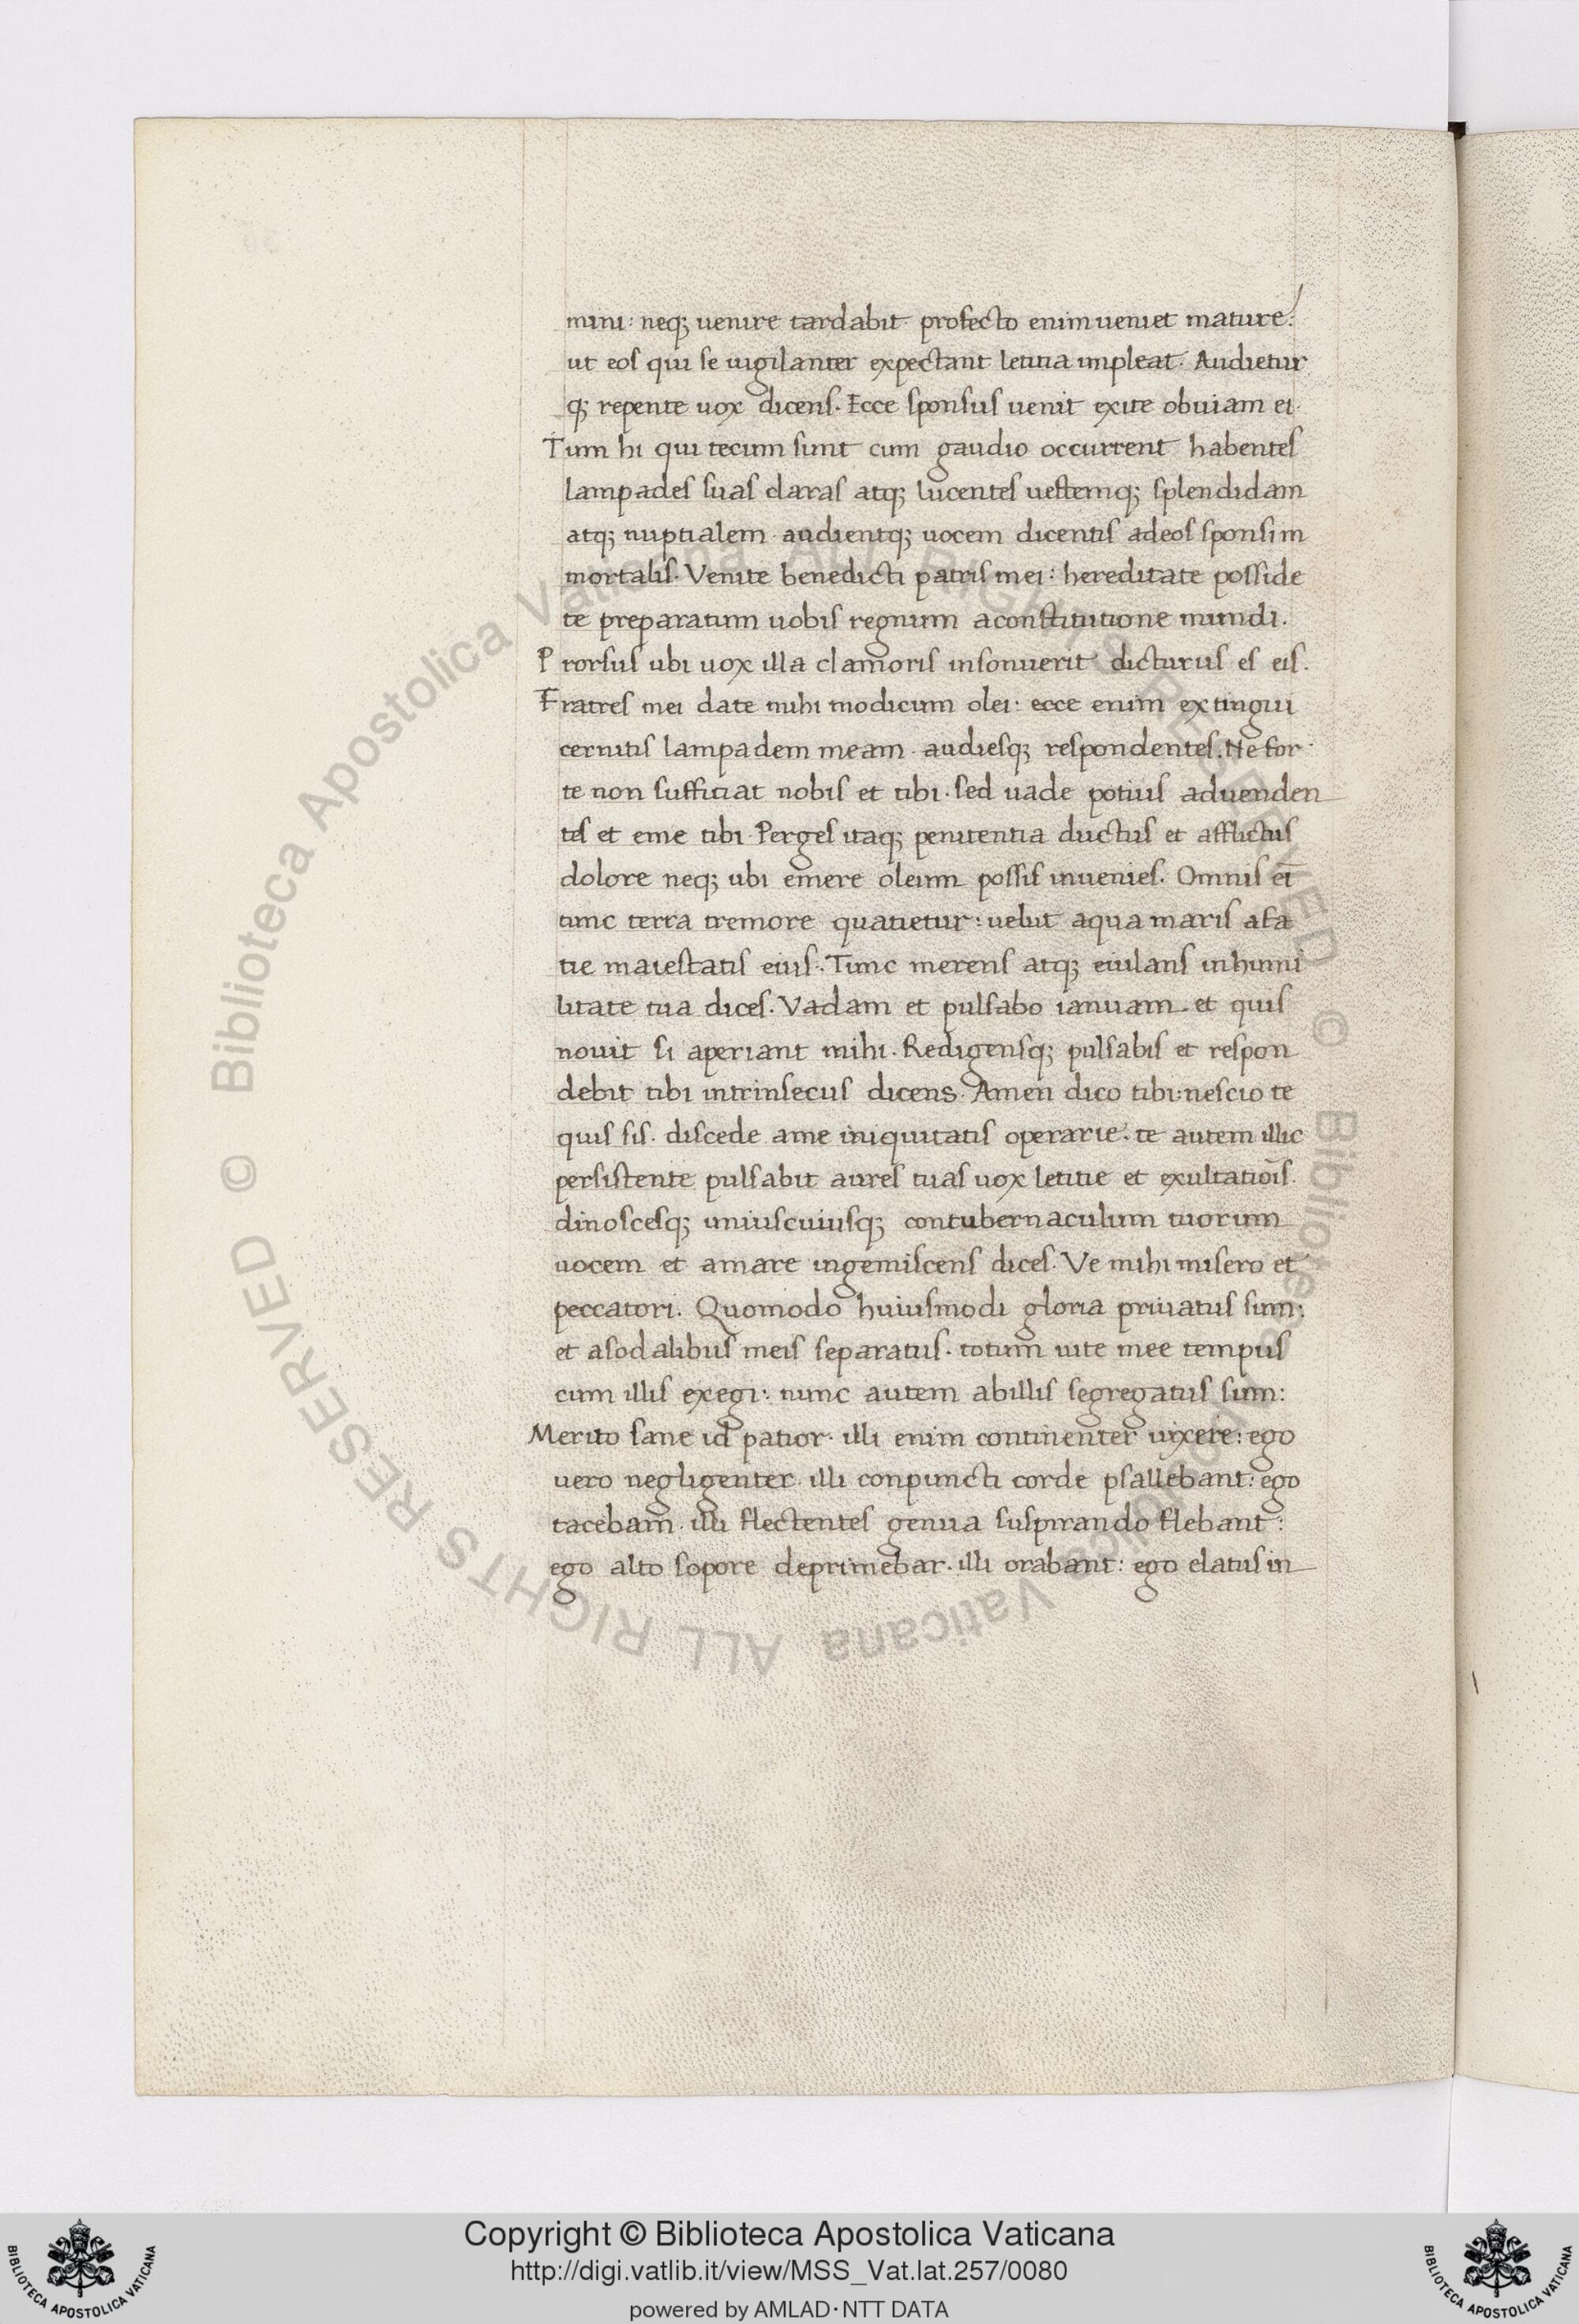 mini: neq; uenire tardabit· profecto enim ueniet mature:
ut eos qui se uigilanter expectant letitia impleat· Audietur
q; repente uox dicens· Ecce sponsus uenit exite obuiam ei·
Tum hi qui tecum sunt cum gaudio occurrent habentes
lampades suas claras atq; lucentes uestemq; splendidam
atq; nuptialem· audientq; uocem dicentis adeos sponsi im
mortalis· Venite benedicti patris mei: hereditate posside
te preparatum uobis regnum aconstitutione mundi.
Prorsus ubi uox illa clamoris insonuerit dicturus es eis.
Fratres mei date mihi modicum olei: ecce enim extingui
cernitis lampadem meam· audiesq; respondentes. Ne for
te non sufficiat nobis et tibi· sed uade potius aduenden
tes et eme tibi· Perges itaq; penitentia ductus et afflictus
dolore neq; ubi emere oleum possis inuenies. Omnis ei
tunc terra tremore quatietur: uelut aqua maris afa
tie maiestatis eius. Tunc merens atq; eiulans inhumi
litate tua dices· Vadam et pulsabo ianuam· et quis
nouit si aperiant mihi· Redigensq; pulsabis et respon
debit tibi intrinsecus dicens· Amen dico tibi: nescio te
quis sis· discede ame iniquitatis operarie· te autem illic
persistente pulsabit aures tuas uox letitie et exultatiois·
dinoscesq; uniuscuiusq; contubernaculum tuorum
uocem et amare ingemiscens dices· Ve mihi misero et
peccatori. Quomodo huiusmodi gloria priuatus sum:
et asodalibus meis separatus· totum uite mee tempus
cum illis exegi: nunc autem abillis segregatus sum:
Merito sane id patior· illi enim continenter uixere: ego
uero negligenter· illi conpuncti corde psallebant: ego
tacebam· illi flectentes genua suspirando flebant:
ego alto sopore deprimebar· illi orabant: ego elatus in
© Biblioteca Apostolica Vaticana ALL RIGHTS RESERVED © Biblioteca Apostolica Vaticana ALL RIGHTS RESERVED
Copyright © Biblioteca Apostolica Vaticana
http://digi.vatlib.it/view/MSS_Vat.lat.257/0080
powered by AMLAD·NTT DATA
BIBLIOTECA APOSTOLICA VATICANA
BIBLIOTECA APOSTOLICA VATICANA